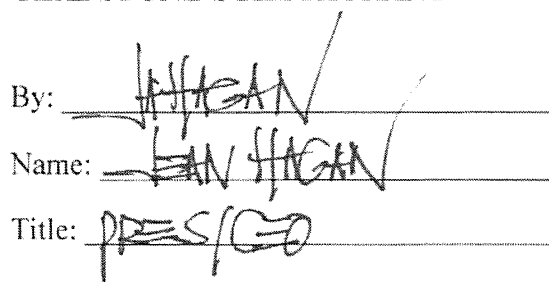 By: JAHAGAN
Name: JEAN HAGAN
Title: PRES/CEO